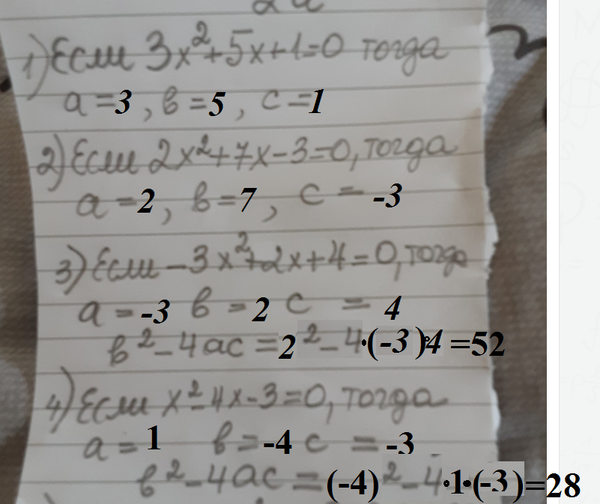 1) Если 3x²+5x+1=0 тогда
a=3, в=5, c=1
2) Если 2x²+7x-3=0, тогда
a=2, в=7, c=-3
3) Если -3x²+2x+4=0, тогда
a=-3 в=2 c=4
в²-4ac=2²-4·(-3)·4=52
4) Если x²-4x-3=0, тогда
a=1 в=-4 c=-3
в²-4ac=(-4)²-4·1·(-3)=28